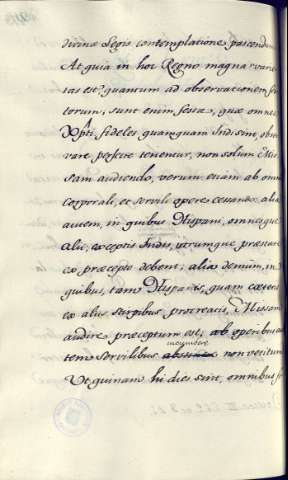 divinæ Legis contemplatione pascendum.
At quia in hoc Regno magna varie
tas est quantum ad observationem fes
torum, sunt enim festa, quæ omnes
Xpti fideles quamquam Indi sint obser
vare perfecte tenentur, non solum Mis
sam audiendo, verum etiam ab omni
corporali, ac servili opere cessando, alia
autem, in quibus Hispani, omnesque
alii, exceptis Indis, utrumque præstare
ex præcepto debent; alia demum, in
quibus, tam Hispanis, quam cæteris
ex aliis stirpibus procreatis, Missam
audire præceptum est, ab operibus au
tem servilibus incumbere non vetitum
Ut quinam hi dies sint, omnibus